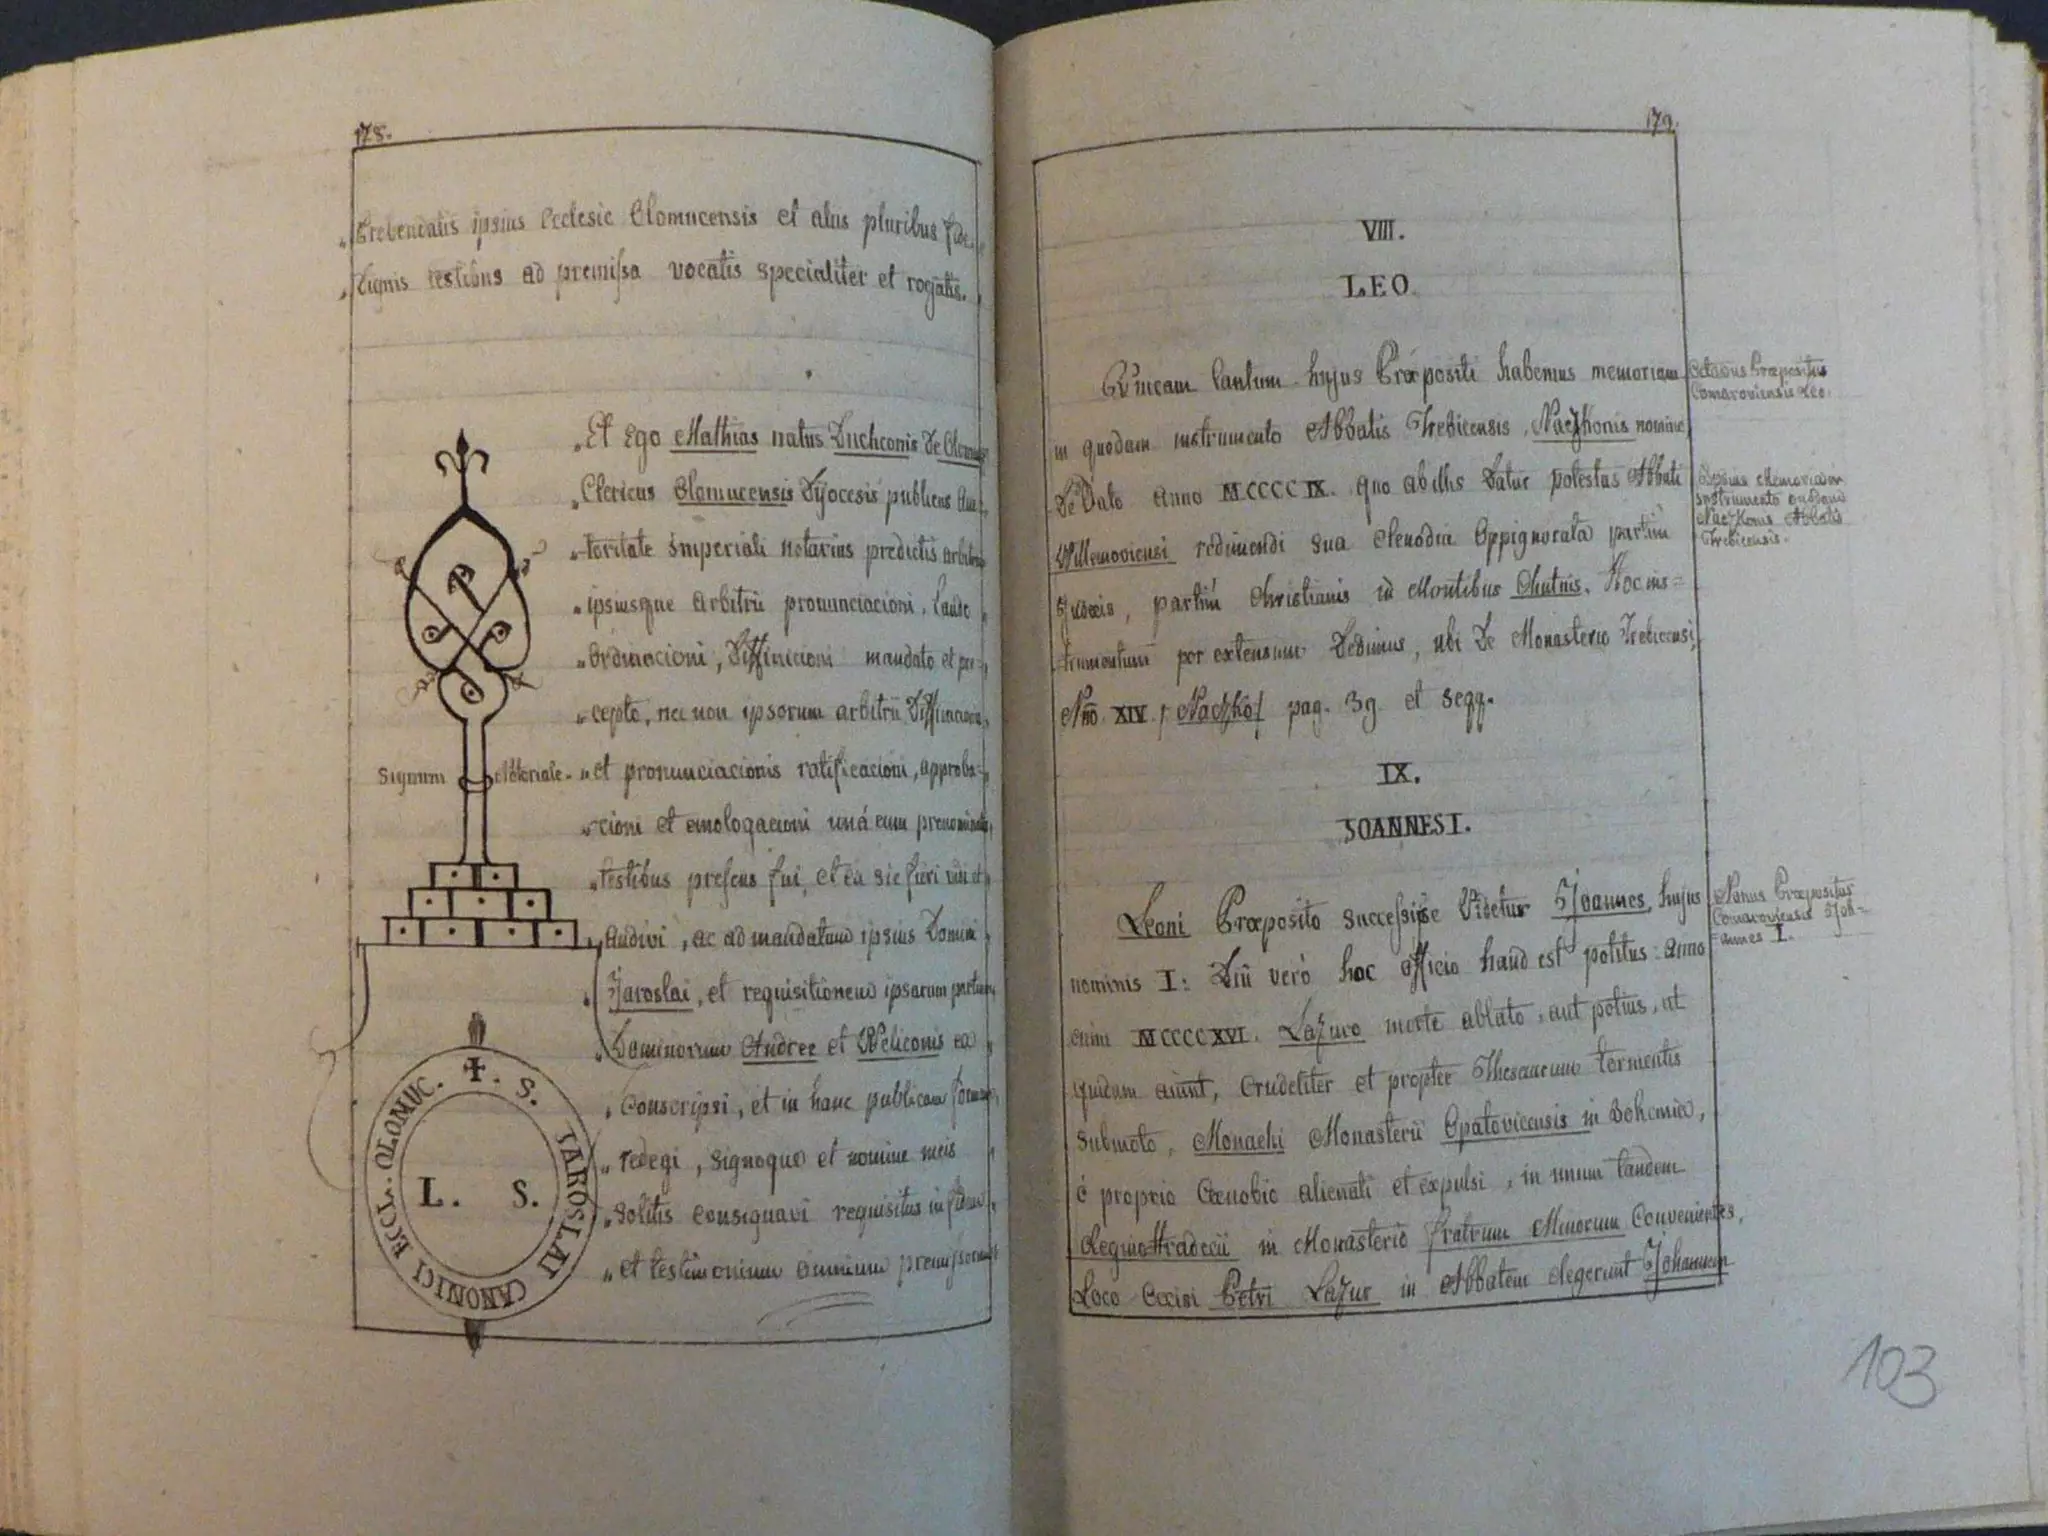 178.
„Prebendatis ipsius Ecclesie Olomucensis et aliis pluribus fide.
„dignis testibus ad premissa vocatis specialiter et rogatis.
„Et Ego Mathias natus Duchconis de Olomuc
„Clericus Olomucensis Dyocesis publicus Auc-
„toritate Imperiali notarius predictis arbitrio
„ipsiusque arbitrii pronunciacioni, laudo
„Ordinacioni, Diffinicioni mandato et pre-
„cepto, nec non ipsorum arbitrii Diffinicionis,
Signum Notoriale.
„et pronunciacionis ratificacioni, approba-
„cioni et emologacioni unà cum prenominatis
„testibus presens fui, et ea sic fieri vidi et
„Audivi, ac ad mandatum ipsius Domini
„Jaroslai, et requisitionem ipsarum partium,
„Dominorum Andree et Weliconis ea
„Conscripsi, et in hanc publicam formam,
„redegi, signoque et nomine meis
„solitis consignavi requisitus in fidem,
„et testimonium omnium premissorum
✝. S. JAROSLAI CANONICI ECCL. OLOMUC.
L. S.
179.
VIII.
LEO
Unicam tantum hujus Præpositi habemus memoriam
in quodam instrumento Abbatis Trebicensis, Naczkonis nomine,
De Dato Anno MCCCCIX. quo ab illis datur potestas Abbati
Willemoviensi redimendi sua Clenodia Oppignorata partim
Judæis, partim Christianis in Montibus Chutnis. Hoc ins=
trumentum per extensum Dedimus, ubi De Monasterio Trebicensi,
Nro XIV / Naczko / pag. 39. et seqq.
Octavus Præpositus
Comaroviensis Leo.
Ipsius Memoriam
instrumento quodam
Naczkonis Abbatis
Trebicensis.
IX.
JOANNES I.
Leoni Præposito successisse Videtur Joannes, hujus
nominis I: Diu verò hoc officio haud est potitus: anno
enim MCCCCXVI. Lazuro morte ablato, aut potius, ut
quidam aiunt, Crudeliter et propter Thesaurum tormentis
submoto, Monachi Monasterii Opatovicensis in Bohemia,
è proprio Cœnobio alienati et expulsi, in unum tandem
Reginæ Hradecii in Monasterio fratrum Minorum Convenientes,
Loco Occisi Petri Lazur in Abbatem elegerunt Johannem
Nonus Præpositus
Comaroviensis Joh=
annes I.
103